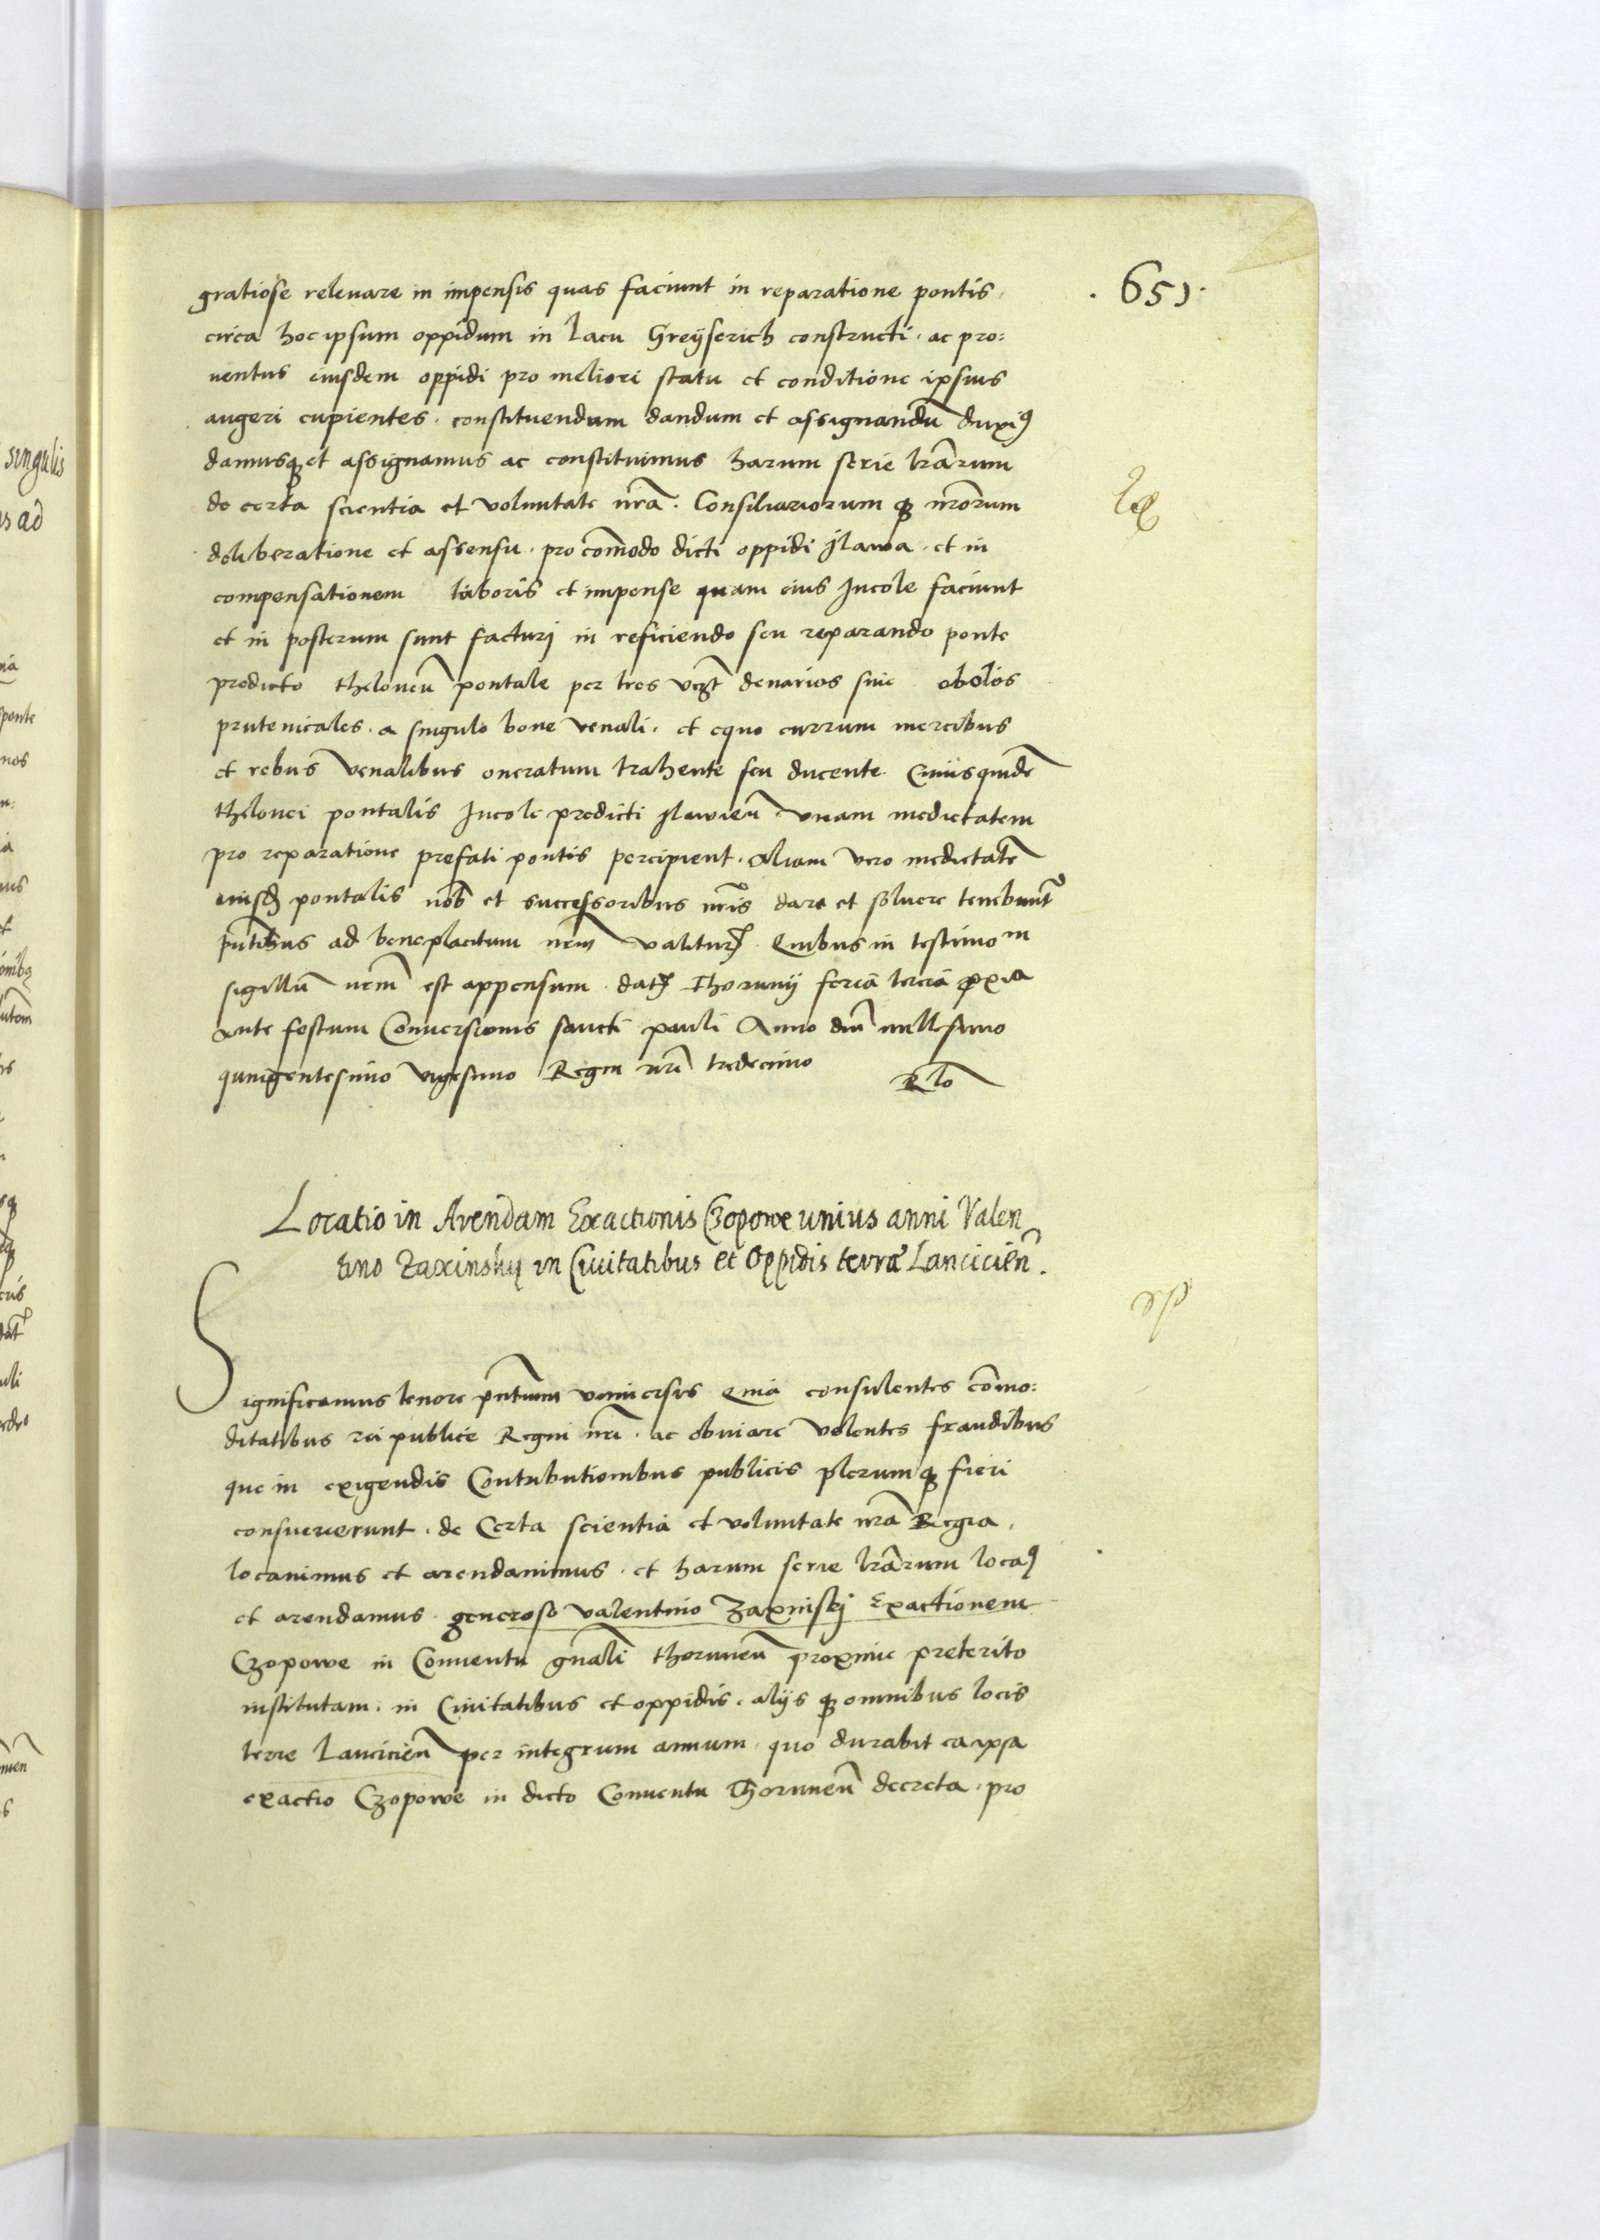 . 651 .
gratiose relevare in impensis quas faciunt in reparatione pontis,
circa hoc ipsum oppidum in lacu Greÿserich constructi . ac pro:
ventus eiusdem oppidi pro meliori statu et conditione ipsius
augeri cupientes . constituendum dandum et assignandū duxi⁹
damusqꝫ et assignamus ac constituimus harum serie lrārum
de certa scientia et voluntate nrā . Consiliariorum qꝫ nrōrum
deliberatione et assensu . pro cōmodo dicti oppidi Jlawa . et in
compensationem laboris et impense quam eius Incole faciunt
et in posterum sunt facturi in reficiendo seu reparando ponte
predicto theloneū pontale per tres denarios sive obolos
prutenicales . a singulo bove venali . et equo currum mercibus
et rebus venalibus oneratum trahente seu ducente Cuiusquidē
thelonei pontalis Incole predicti Jlawien̄ . unam medietatem
pro reparatione prefati pontis percipient . aliam vero medietatē
eiusd pontalis nōb et successoribus nrīs dare et solvere tenebunt
pn̄tibus ad beneplacitum nrm̄ valitur . Quibus in testimo m
sigillū nrm̄ est appensum . dat Thorunij feria tercia proxia
ante festum Conversionis sancti pauli Anno dnī millesimo
quingentesimo vigesimo Regni nrī tredecimo
R lo
Locatio in Arendam Exactionis Czopowe unius anni Valen
tino Zaxinsky in Civitatibus et Oppidis terræ Lancicien̄ .
Significamus tenore pn̄tium universis Quia consulentes cōmo:
ditatibus rei publice Regni nrī . ac obviare volentes fraudibus
que in exigendis Contributionibus publicis plerumqꝫ fieri
consueverunt . de Certa scientia et voluntate nrā Regia ,
locavimus et arendavimus . et harum serie lrārum loca⁹
et arendamus . generoso valentino Zaxinskj Exactionem
Czopowe in Conventu gn̄ali thorunen̄ proxime preterito
institutam . in Civitatibus et oppidis . alijs qꝫ omnibus locis
terre Lancicien̄ per integrum annum . quo durabit ea ipsa
exactio Czopowe in dicto Conventu Thorunen̄ decreta . pro